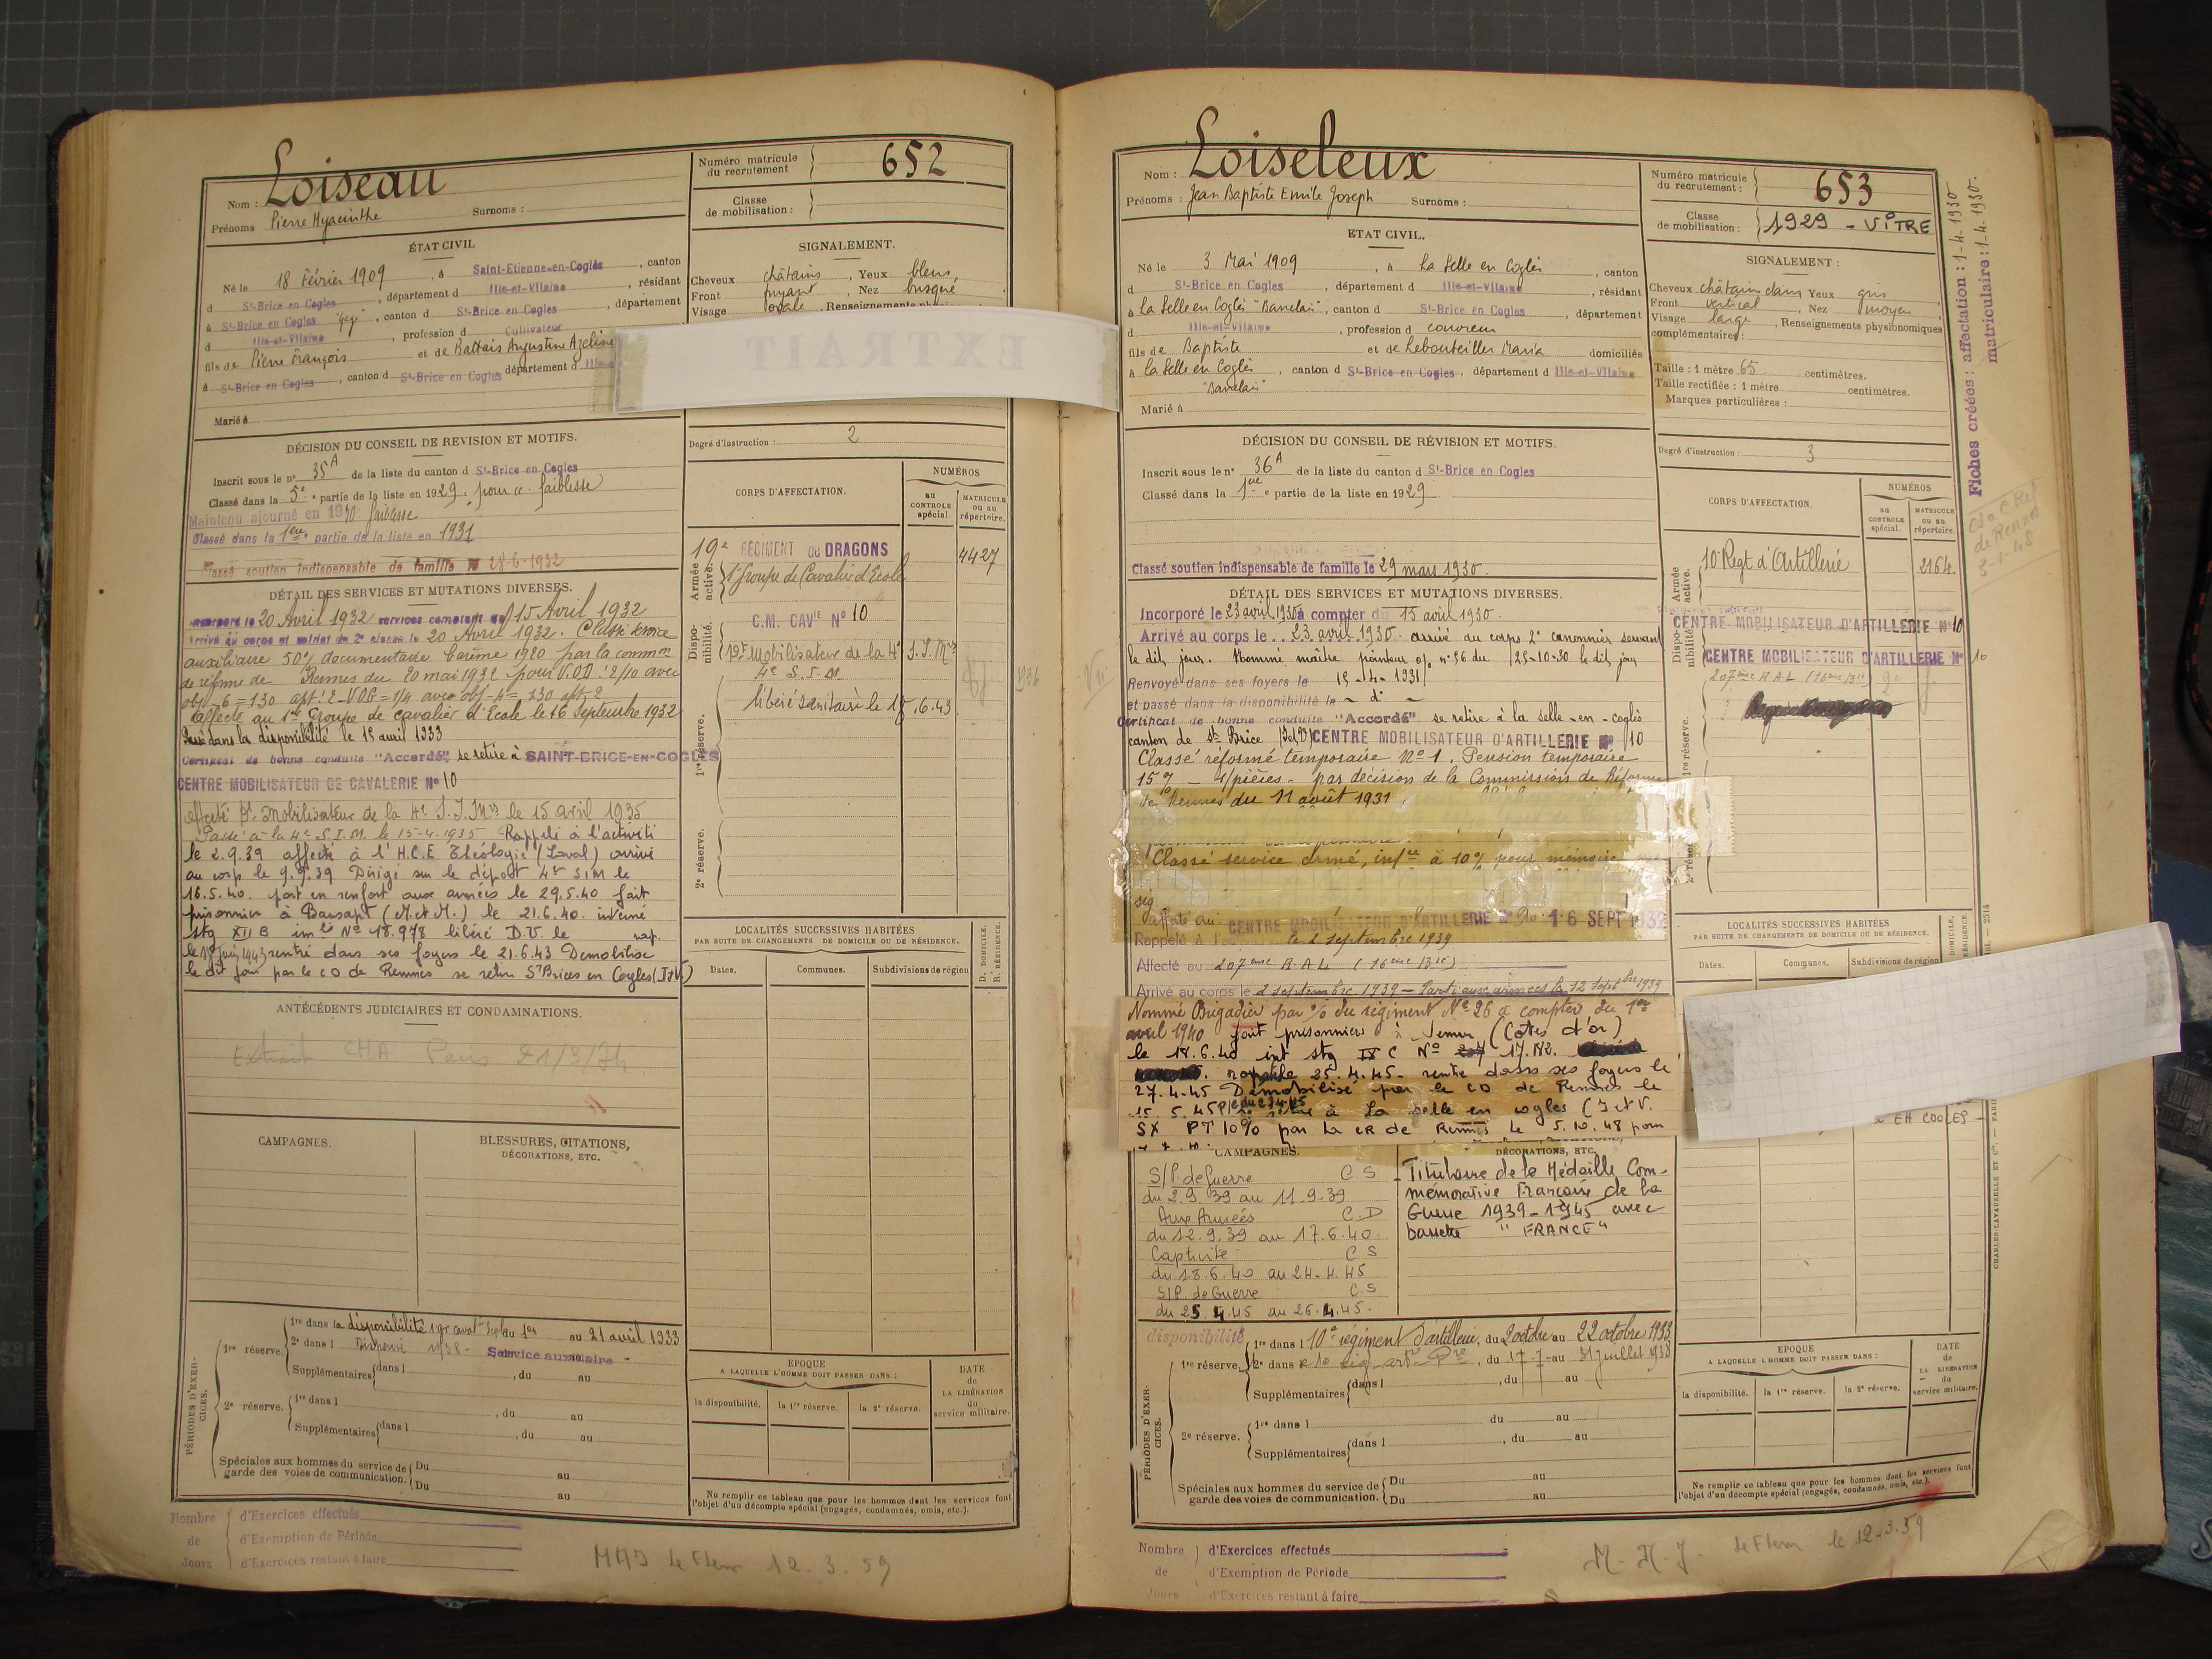 Loiseau
Nom :
Prénoms Pierre Hyacinthe Surnoms :
Numéro matricule du recrutement 652
Classe de mobilisation :
ÉTAT CIVIL
Né le 18 Février 1909, à Saint-Etienne-en-Coglès, canton
d St-Brice en Cogles, département d Ille-et-Vilaine, résidant
à St-Brice en Cogles, canton d St-Brice en Cogles, département
d Ille-et-Vilaine, profession d Cultivateur
fils de Pierre François et de Battais Augustine Azeline
à St-Brice en Cogles, canton d St-Brice en Cogles département d Ille
Marié à
SIGNALEMENT.
Cheveux châtains, Yeux bleus,
Front fuyant, Nez busqué
Visage ovale, Renseignements
EXTRAIT
Degré d'instruction : 2
DÉCISION DU CONSEIL DE REVISION ET MOTIFS.
Inscrit sous le n° 35A de la liste du canton d St-Brice en Cogles
Classé dans la 5e partie de la liste en 1929. pour faiblesse
Maintenu ajourné en 1930 faiblesse
Classé dans la 1ere partie de la liste en 1931
Classé soutien indispensable de famille le 28-6-1932
CORPS D'AFFECTATION.
NUMÉROS
au CONTROLE spécial.
MATRICULE ou au répertoire.
Armée active.
19e RÉGIMENT DE DRAGONS 4427
1er Groupe de Cavalier d'Ecole
Disponibilité.
C.M. CAVIE N° 10
Mobilisateur de la 4e S.I.Mres
4e S.I.M
libéré sanitaire le 18.6.43
1re réserve.
2e réserve.
DÉTAIL DES SERVICES ET MUTATIONS DIVERSES.
Incorporé le 20 Avril 1932 services comptant du 15 Avril 1932
Arrivé au corps et soldat de 2e classe le 20 Avril 1932. Classé service
auxiliaire 50% documentaire barème 1920 par la common
de réforme de Rennes du 20 mai 1932 pour V.O.D : 2/10 avec
affecté au 1er Groupe de cavalier d'Ecole le 16 Septembre 1932
Passé dans la disponibilité le 15 avril 1933
Certificat de bonne conduite "Accordé", se retire à SAINT-BRICE-EN-COGLES
CENTRE MOBILISATEUR DE CAVALERIE N° 10
affecté Mobilisateur de la 4e S.I.Mres le 15 avril 1935
Passé à la 4e S.I.M. le 15-4-1935 Rappelé à l'activité
le 2.9.39 affecté à l'H.C.E Théologie (Laval) arrivé
au corp le 9.9.39 Dirigé sur le dépôt 4e SIM le
16.5.40. part en renfort aux armées le 29.5.40 fait
prisonnier à (M.et M.) le 21.6.40. interné
stg XII B im le N° 18.978 libéré D.V. le rap.
le 18 Juin 1943 rentré dans ses foyers le 21.6.43 Demobilisé
le dit jour par le CO de Rennes se retire St Brices en Cogles (I et V)
ANTÉCÉDENTS JUDICIAIRES ET CONDAMNATIONS.
Extrait CHA Paris 21/3/74
LOCALITÉS SUCCESSIVES HABITÉES
PAR SUITE DE CHANGEMENTS DE DOMICILE OU DE RÉSIDENCE.
Dates. Communes. Subdivisions de région
D. DOMICILE. R. RÉSIDENCE.
CAMPAGNES.
BLESSURES, CITATIONS, DÉCORATIONS, ETC.
PÉRIODES D'EXERCICES.
1re réserve. 1re dans la disponibilité du 1er au 21 avril 1933
2e dans l Dispensé 1938 - Service auxiliaire -
Supplémentaires dans l , du au
2e réserve. 1re dans l , du au
Supplémentaires dans l , du au
Spéciales aux hommes du service de garde des voies de communication. Du au
Du au
EPOQUE
A LAQUELLE L'HOMME DOIT PASSER DANS :
la disponibilité. la 1re réserve. la 2e réserve.
DATE de LA LIBÉRATION du service militaire.
Ne remplir ce tableau que pour les hommes dont les services font
l'objet d'un décompte spécial (engagés, condamnés, omis, etc.).
Nombre de Jours
d'Exercices effectués
d'Exemption de Période
d'Exercices restant à faire
12.3.59
Loiseleux
Nom :
Prénoms : Jean Baptiste Emile Joseph Surnoms :
Numéro matricule du recrutement : 653
Classe de mobilisation : 1929 - VITRE
ETAT CIVIL.
Né le 3 Mai 1909, à La Selle en Coglès, canton
d St-Brice en Cogles, département d Ille-et-Vilaine, résidant
à La Selle en Coglès, canton d St-Brice en Cogles, département
d Ille-et-Vilaine, profession d couvreur
fils de Baptiste et de Lebouteiller Maria domiciliés
à La Selle en Coglès, canton d St-Brice en Cogles, département d Ille-et-Vilaine
Marié à
SIGNALEMENT :
Cheveux châtains clairs Yeux gris
Front vertical, Nez moyen
Visage large, Renseignements physionomiques
complémentaires :
Taille : 1 mètre 65 centimètres.
Taille rectifiée : 1 mètre centimètres.
Marques particulières :
Degré d'instruction : 3
Fiches créées : affectation : 1-4-1930
matriculaire : 1-4-1930.
de Rennes
3-1-48
DÉCISION DU CONSEIL DE RÉVISION ET MOTIFS.
Inscrit sous le n° 36A de la liste du canton d St-Brice en Cogles
Classé dans la 1ere partie de la liste en 1929
Classé soutien indispensable de famille le 29 mars 1930.
CORPS D'AFFECTATION.
NUMÉROS
au CONTROLE spécial.
MATRICULE ou au répertoire.
Armée active.
10e Regt d'Artillerie 2164
Disponibilité.
CENTRE MOBILISATEUR D'ARTILLERIE N° 10
CENTRE MOBILISATEUR D'ARTILLERIE N° 10
207ème R.A.L (16ème Bie)
1re réserve.
DÉTAIL DES SERVICES ET MUTATIONS DIVERSES.
Incorporé le 23 avril 1930 à compter du 15 avril 1930.
Arrivé au corps le 23 avril 1930. arrivé au corps 2e canonnier servant
le dit jour. Nommé maître pointeur o/ n° 96 du 25-10-30 le dit jour
Renvoyé dans ses foyers le 15-4-1931
et passé dans la disponibilité le - d° -
Certificat de bonne conduite "Accordé" se retire à la selle-en-coglès
canton de St Brice (I et V) CENTRE MOBILISATEUR D'ARTILLERIE N° 10
Classé réformé temporaire N° 1. Pension temporaire
15% - 4/pièces - par décision de la Commission de Réforme
de Rennes du 11 août 1931.
Classé service armé, infre à 10% pour mémoire
sig
affecté au CENTRE MOBILISATEUR D'ARTILLERIE N° 10 16 SEPT 1932
Rappelé à l'activité le 2 septembre 1939
Affecté au 207ème R.A.L (16ème Bie)
Arrivé au corps le 2 septembre 1939 - Parti aux armées le 12 septbre 1939
Nommé Brigadier par o/ du régiment N° 26 à compter du 1er
avril 1940 fait prisonnier à Semur (Cotes d'or)
le 18.6.40 int stg IX C N° 17.182.
rapatrié 25.4.45 - rentré dans ses foyers le
27.4.45 Démobilisé par le CO de Rennes le
15.5.45 se retire à La selle en cogles (I et V.
SX PT 10% par la CR de Rennes le 5.10.48 pour
LOCALITÉS SUCCESSIVES HABITÉES
PAR SUITE DE CHANGEMENTS DE DOMICILE OU DE RÉSIDENCE.
Dates. Communes. Subdivisions de région
EN COGLES -
CAMPAGNES.
S/P. de Guerre C.S
du 2.9.39 au 11.9.39
Aux Armées C.D
du 12.9.39 au 17.6.40.
Captivité C S
du 18.6.40 au 24.4.45
S/P. de Guerre C.S
du 25.4.45 au 26.4.45.
DÉCORATIONS, ETC.
Titulaire de la Médaille Com-
mémorative Française de la
Guerre 1939-1945 avec
barrette "FRANCE"
PÉRIODES D'EXERCICES.
disponibilité 1re dans l 10e régiment d'artillerie, du 2 octobre au 22 octobre 1933
1re réserve. 2e dans, du 17-7 au 31 juillet 1938
Supplémentaires dans l , du au
2e réserve. 1re dans l du au
Supplémentaires dans l , du au
Spéciales aux hommes du service de garde des voies de communication. Du au
Du au
EPOQUE
A LAQUELLE L'HOMME DOIT PASSER DANS :
la disponibilité. la 1re réserve. la 2e réserve.
DATE de LA LIBÉRATION du service militaire.
Ne remplir ce tableau que pour les hommes dont les services font
l'objet d'un décompte spécial (engagés, condamnés, omis, etc.).
Nombre de Jours
d'Exercices effectués
d'Exemption de Période
d'Exercices restant à faire
le 12-3.59